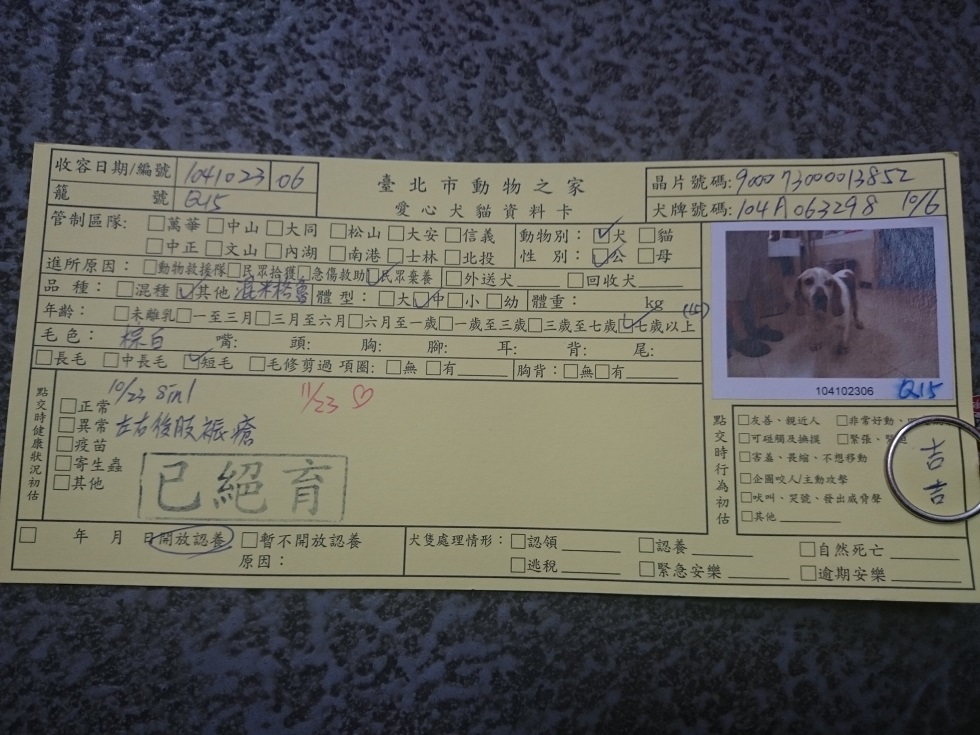 收容日期/編號 1041023 06
籠號 Q15
臺北市動物之家
愛心犬貓資料卡
晶片號碼: 900073000013852
犬牌號碼: 104A063298 10/6
管制區隊: □萬華 □中山 □大同 □松山 □大安 □信義
□中正 □文山 □內湖 □南港 □士林 □北投
動物別: ☑犬 □貓
性別: ☑公 □母
進所原因: □動物救援隊 □民眾拾獲 □急傷救助 ☑民眾棄養 □外送犬 □回收犬
品種: □混種 ☑其他 混米格魯 體型: □大 ☑中 □小 □幼 體重: kg
年齡: □未離乳 □一至三月 □三月至六月 □六月至一歲 □一歲至三歲 □三歲至七歲 ☑七歲以上 (15)
毛色: 棕白 嘴: 頭: 胸: 腳: 耳: 背: 尾:
□長毛 □中長毛 ☑短毛 □毛修剪過 項圈: □無 □有 胸背: □無 □有
104102306 Q15
點交時健康狀況初估
10/23 8in1 11/23 ♡
□正常
□異常 左右後肢褥瘡
□疫苗
□寄生蟲
□其他
已絕育
點交時行為初估
□友善、親近人 □非常好動、
□可碰觸及撫摸 □緊張、緊
□害羞、畏縮、不想移動
□企圖咬人/主動攻擊
□吠叫、哭號、發出威脅聲
□其他
吉吉
□ 年 月 日開放認養 □暫不開放認養
原因:
犬隻處理情形: □認領 □認養 □自然死亡
□逃稅 □緊急安樂 □逾期安樂